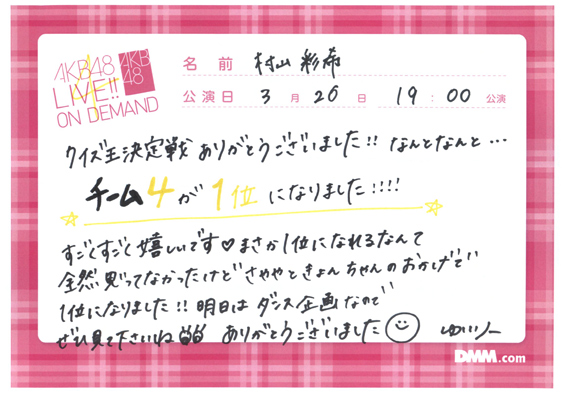 AKB48
LIVE!!
ON DEMAND
AKB
48
名前 村山彩希
公演日 3月26日 19:00公演
クイズ王決定戦 ありがとうございました!! なんとなんと…
チーム4が1位になりました!!!!
すごくすごく嬉しいです♡まさか1位になれるなんて
全然思ってなかったけど さややときょんちゃんのおかげで
1位になりました!! 明日は ダンス企画なので
ぜひ見て下さいね ありがとうございました
DMM.com